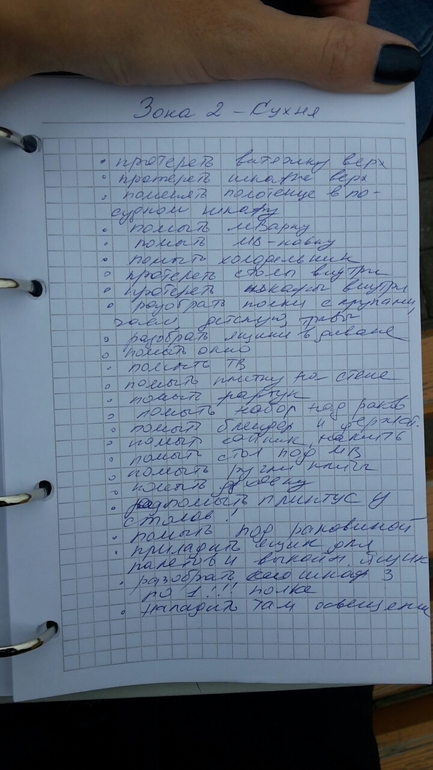 Зона 2 - Кухня
• протереть вытяжку верх
• протереть шкафы верх
• поменять полотенце в по-
судном шкафу
• помыть мВарку
• помыть МВ-новку
• помыть холодильник
• протереть столы внутри
• протереть шкафы внутри
• разобрать полки с крупами,
чаем, детскую, травы
• разобрать ящики в диване
• помыть окно
• помыть ТВ
• помыть плитку на стене
• помыть фартук
• помыть набор над раков
• помыть блендер и держат.
• помыт чайник, накипь
• помыт стол под МВ
• помыть ручки плиты
• помыть
• помыть плинтус у
столов!
• помыть под раковиной
• приладить ящик для
пакетов и выкин. ящик
• разобрать шкаф 3
по 1!!! полке
• наладить там освещение